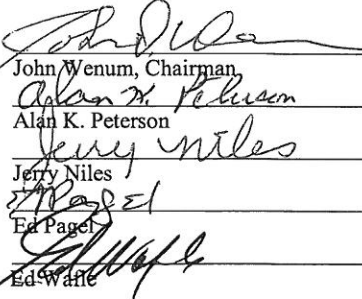 John D. Wenum
John Wenum, Chairman
Alan K. Peterson
Alan K. Peterson
Jerry Niles
Jerry Niles
Ed Pagel
Ed Pagel
Ed Wafle
Ed Wafle